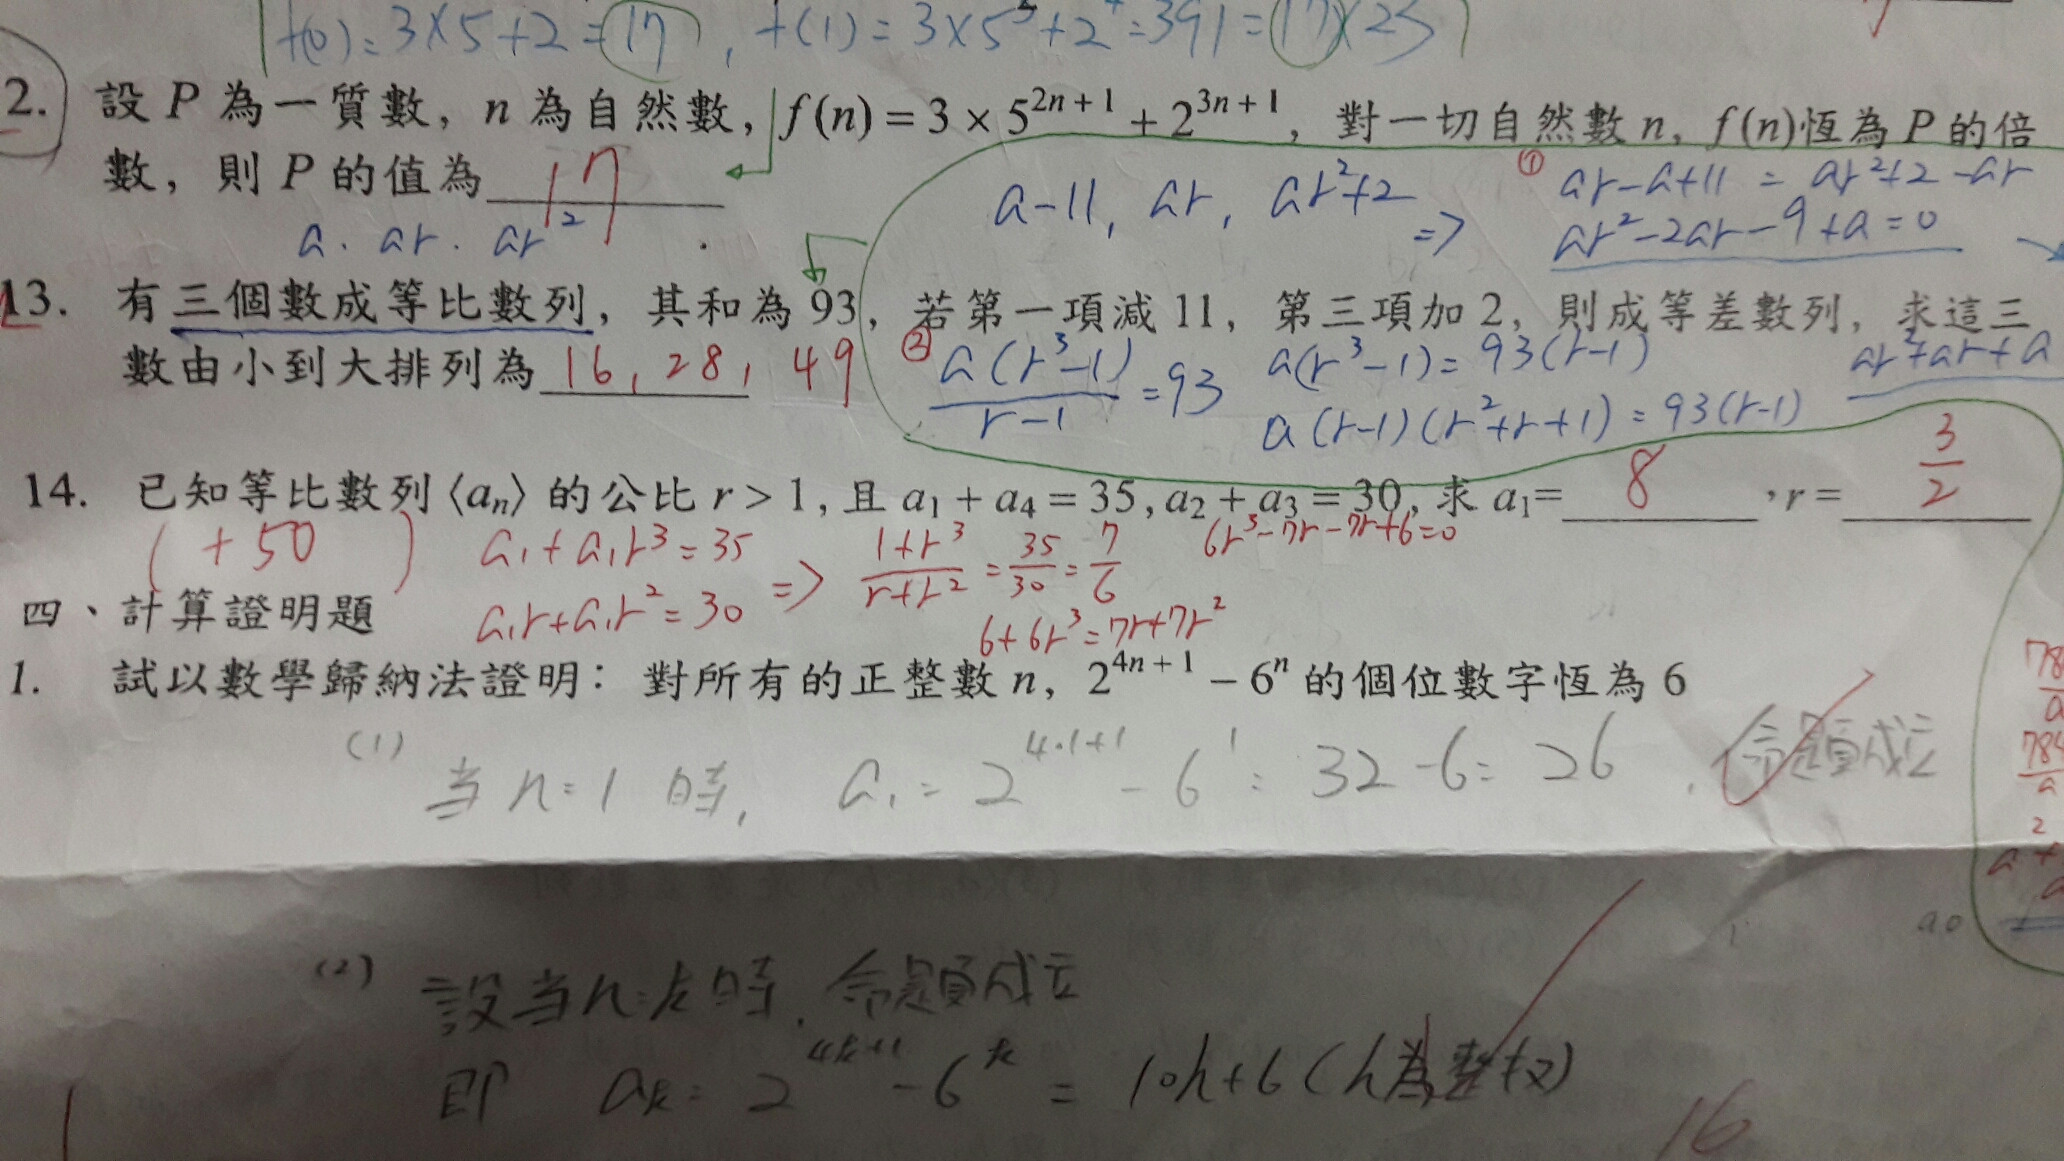 f(0)=3×5+2=17, f(1)=3×5³+2⁴=391=17×23
2. 設 P 為一質數, n 為自然數, f(n) = 3 × 5²ⁿ⁺¹ + 2³ⁿ⁺¹, 對一切自然數 n, f(n)恆為 P 的倍
數, 則 P 的值為 17
a-11, ar, ar²+2 ⇒
① ar-a+11 = ar²+2-ar
ar²-2ar-9+a=0
a. ar. ar²
13. 有三個數成等比數列, 其和為 93, 若第一項減 11, 第三項加 2, 則成等差數列, 求這三
數由小到大排列為 16, 28, 49
② a(r³-1)/r-1 =93
a(r³-1)=93(r-1)
a(r-1)(r²+r+1)=93(r-1)
ar²+ar+a
14. 已知等比數列⟨aₙ⟩的公比 r > 1, 且 a₁ + a₄ = 35, a₂ + a₃ = 30, 求 a₁= 8 , r = 3/2
( +50 )
a₁+a₁r³=35
a₁r+a₁r²=30
⇒ 1+r³/r+r² = 35/30 = 7/6
6r³-7r-7r+6=0
6+6r³=7r+7r²
四、計算證明題
1. 試以數學歸納法證明: 對所有的正整數 n, 2⁴ⁿ⁺¹ − 6ⁿ 的個位數字恆為 6
(1) 当 n=1 時, a₁=2⁴·¹⁺¹-6¹=32-6=26, 命題成立
(2) 設当n=k時, 命題成立
即 aₖ=2⁴ᵏ⁺¹-6ᵏ = 10h+6 (h為整数)
16